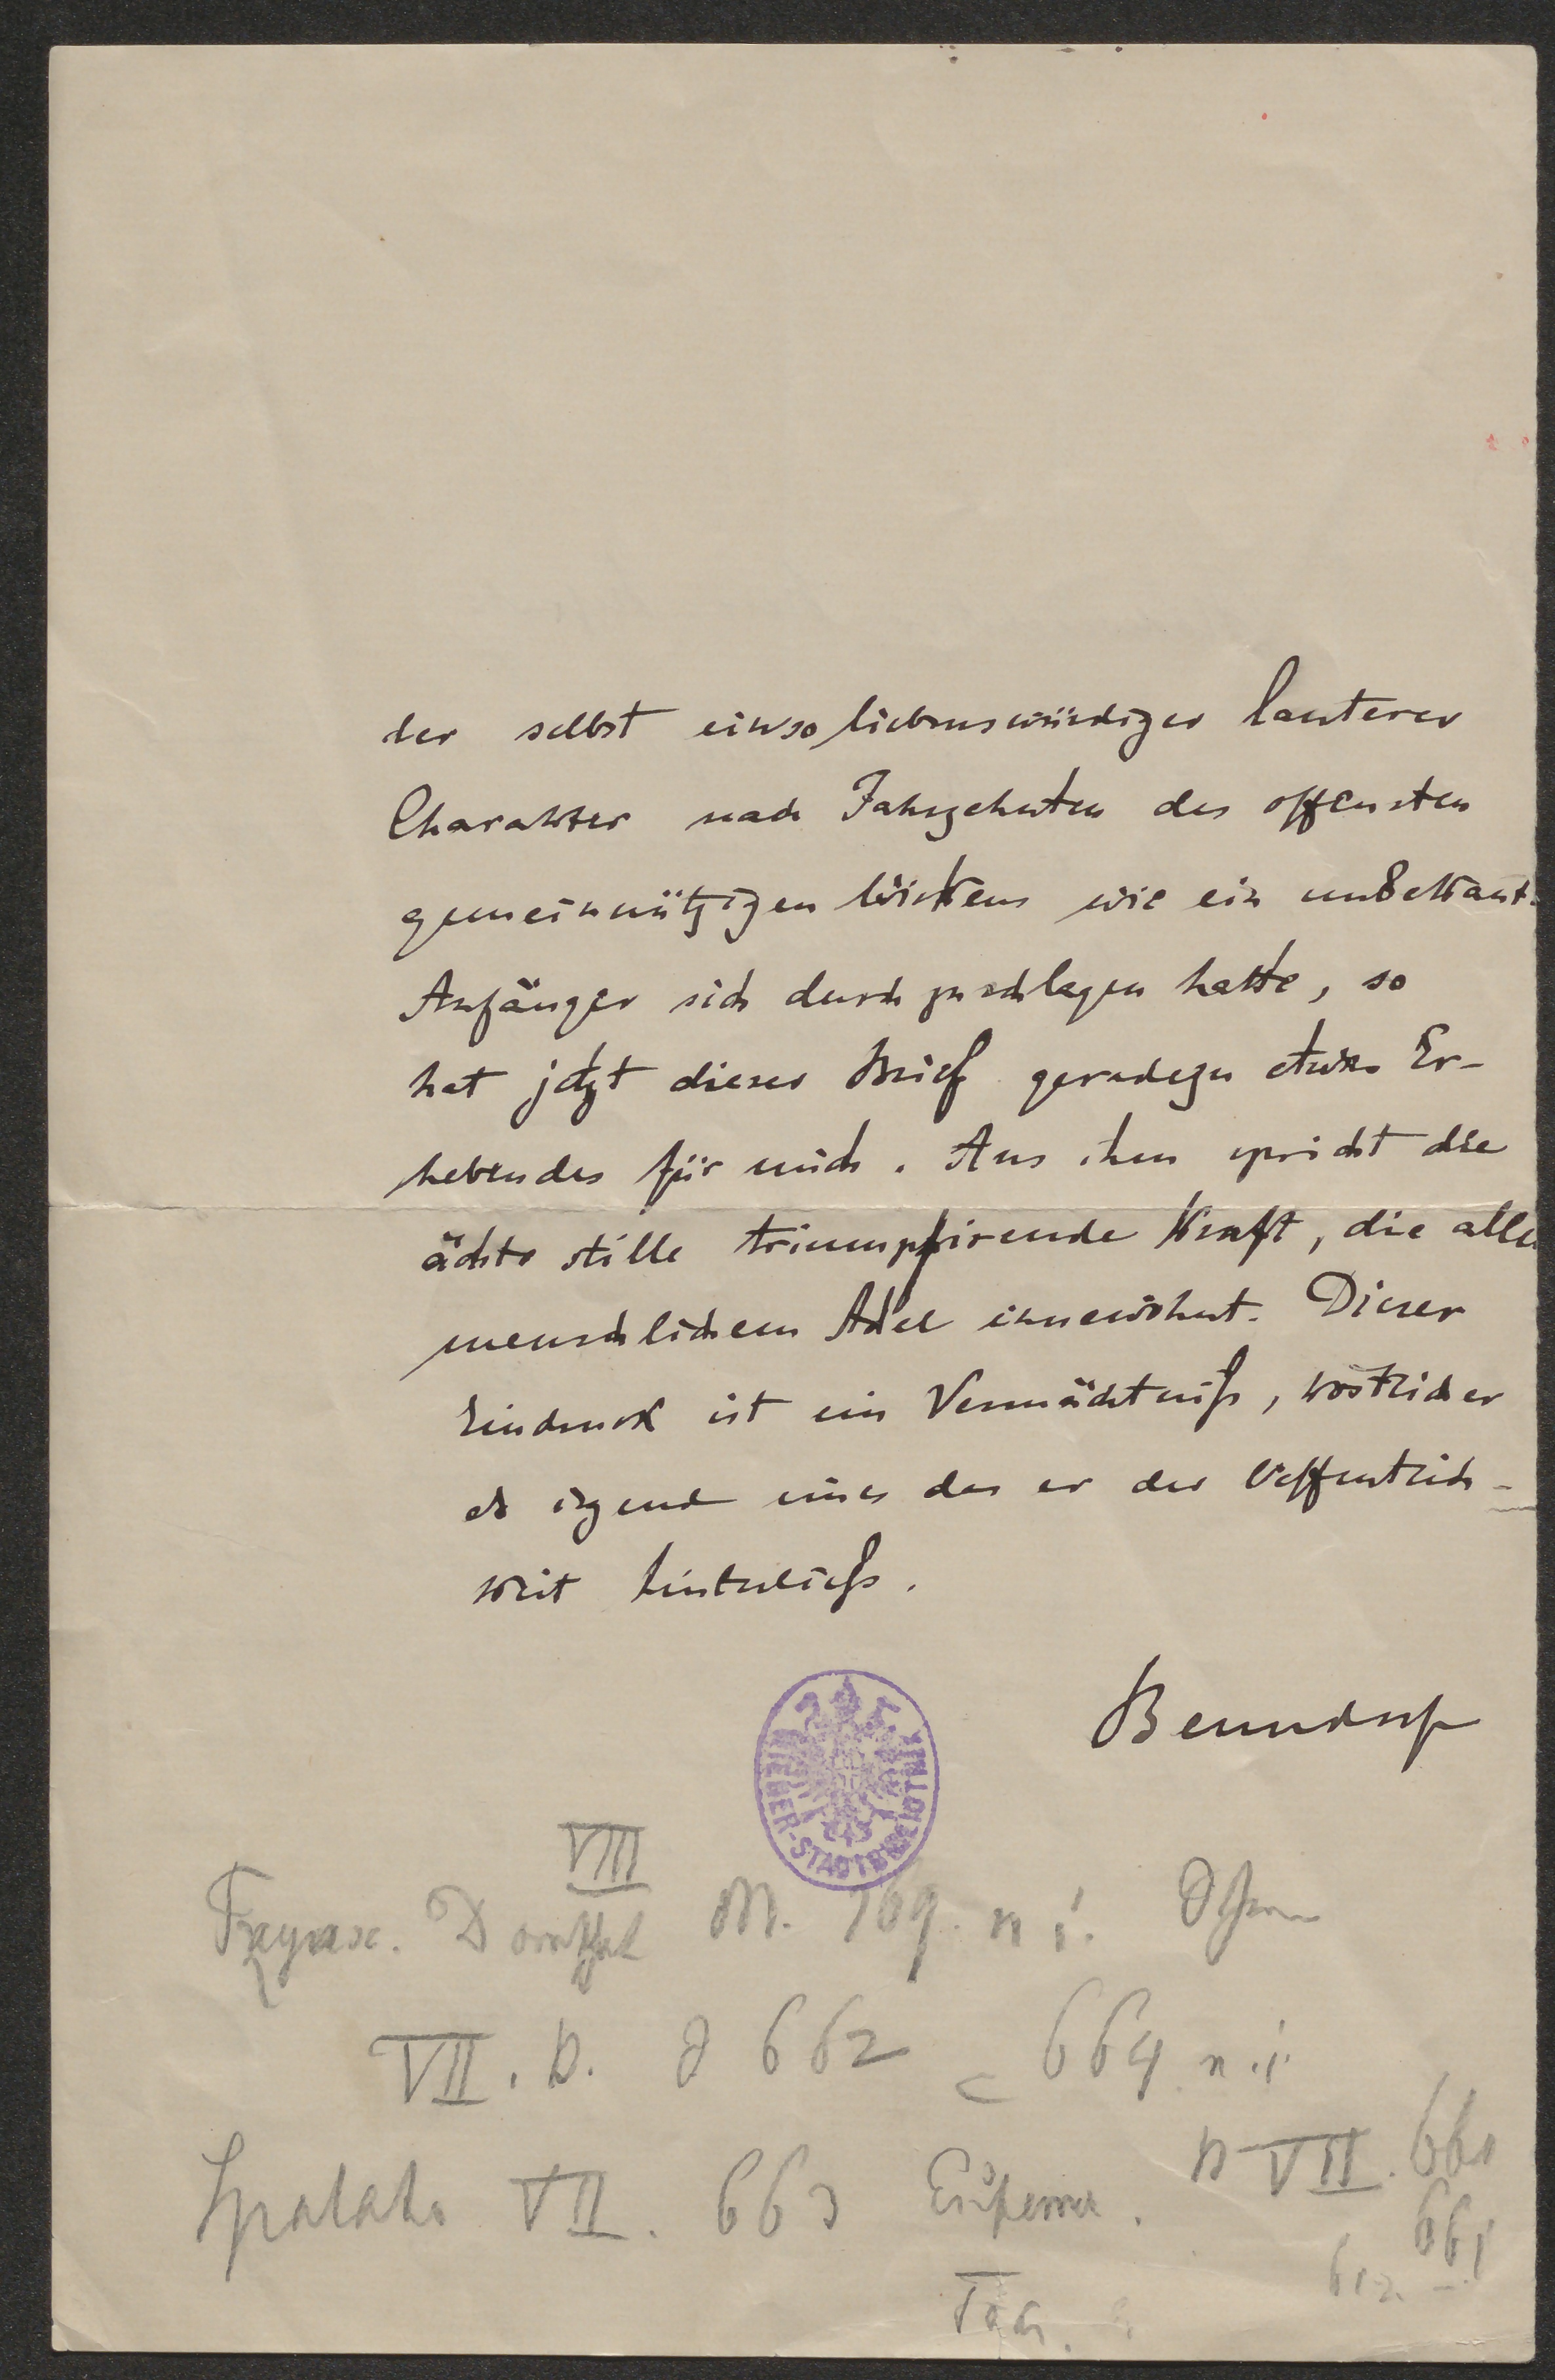 der selbst ein so liebenswürdiger lauterer
Charakter nach Jahrzehnten des offensten
gemeinnützigen Wirkens wie ein unbekant.
Anfänger sich durchzuschlagen hatte, so
hat jetzt dieser Brief geradezu etwas Er-
hebendes für mich. Aus ihm spricht die
ächte stille triumphirende Kraft, die allem
menschlichem Adel innewohnt. Dieser
Eindruck ist ein Vermächtniß, köstlicher
als irgend eines das er der Oeffentlich-
keit hinterließs.
Benndorf
WIENER-STADTBIBLIOTHEK
VIII
M. 769. n i.
VII. b. 662 664 n.i.
Spalato VII. 663 n VII. 660
661